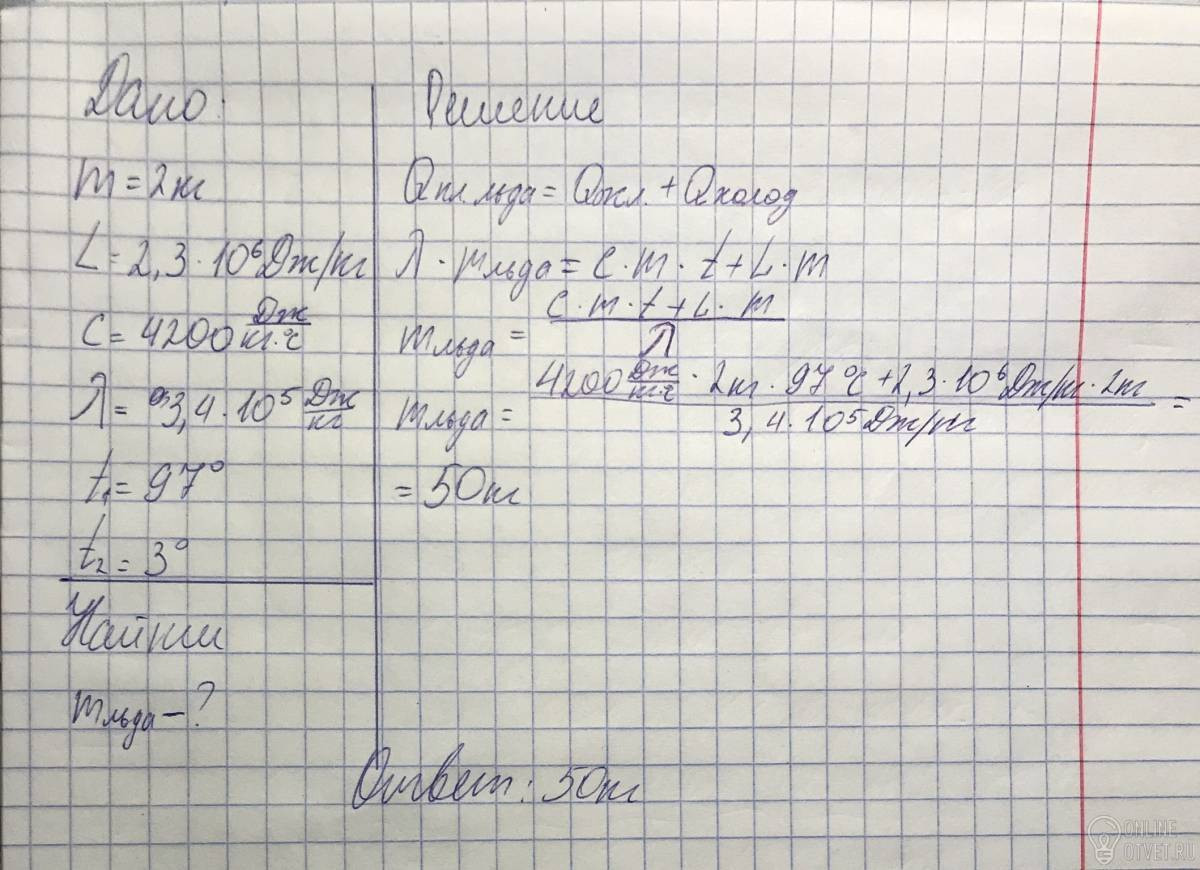 Дано:
m = 2кг
L = 2,3 · 10⁶ Дж/кг
c = 4200 Дж/кг·°c
λ = 3,4 · 10⁵ Дж/кг
t₁ = 97°
t₂ = 3°
Найти
mльда – ?
Решение
Qпл.льда = Qжл. + Qхолод
λ · mльда = c · m · t + L · m
mльда = c · m · t + L · m / λ
mльда = 4200 Дж/кг·°c · 2кг · 97°C + 2,3 · 10⁶ Дж/кг · 2кг / 3,4 · 10⁵ Дж/кг =
= 50кг
Ответ: 50кг
ONLINE
OTVET.RU